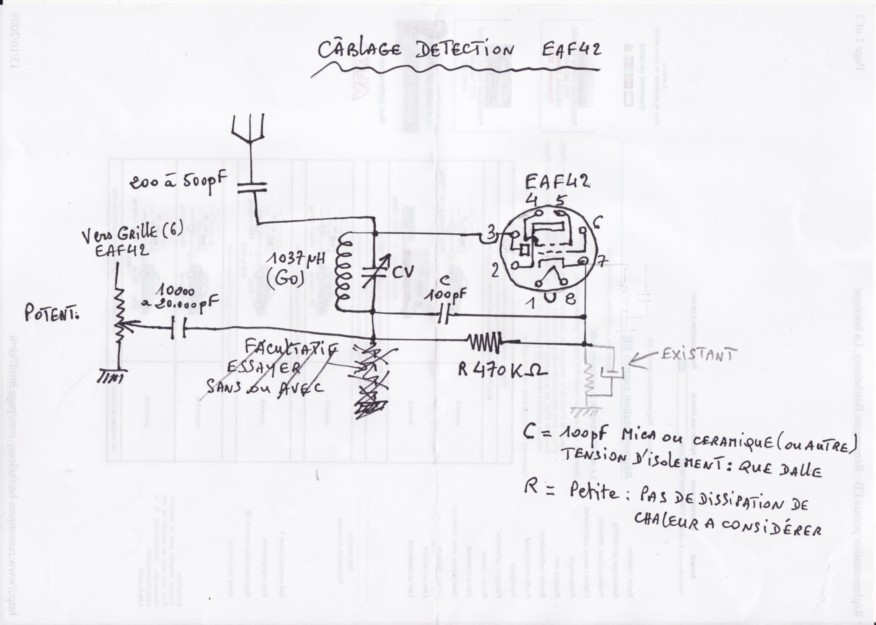 CÂBLAGE DETECTION EAF42
200 à 500pF
EAF42
4 5
3
6
2
7
1 8
Vers GRille (6)
EAF42
1037µH
(Go)
CV
C
100pF
10000
a 20.000pF
POTENT.
FACULTATIF
ESSAYER
SANS OU AVEC
R 470KΩ
EXISTANT
C = 100pf MicA ou CERAMIQUE (ou AUTRE)
TENSION D'ISOLEMENT : QUE DALLE
R = Petite : PAS DE DISSIPATION DE
CHALEUR A CONSIDÉRER